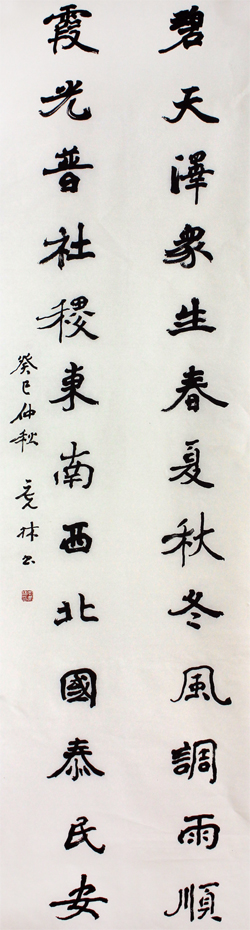 碧天澤衆生春夏秋冬風調雨順
霞光普社稷東南西北國泰民安
癸巳仲秋 堯林书